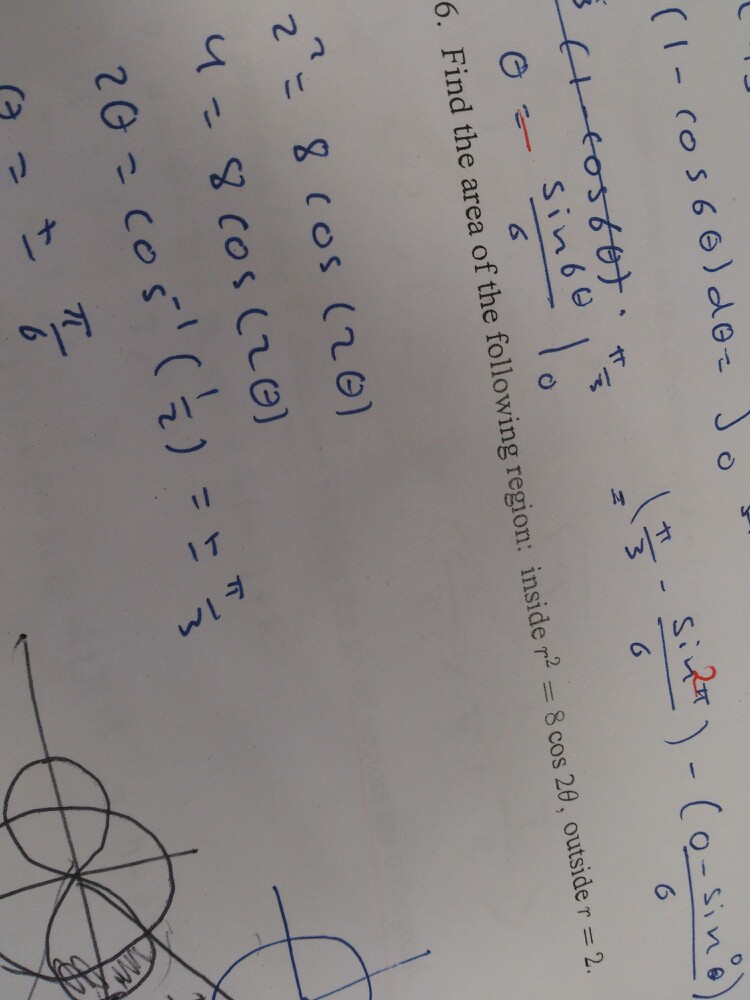 (1 - cos 6θ) dθ =
(1 - cos 6θ) ·
θ = - sin 6θ / 6 | 0 π/3
= (π/3 - sin 2π / 6) - (0 - sin 0 / 6)
6. Find the area of the following region: inside r² = 8 cos 2θ, outside r = 2.
2² = 8 cos (2θ)
4 = 8 cos (2θ)
2θ = cos⁻¹ (1/2) = ± π/3
θ = ± π/6